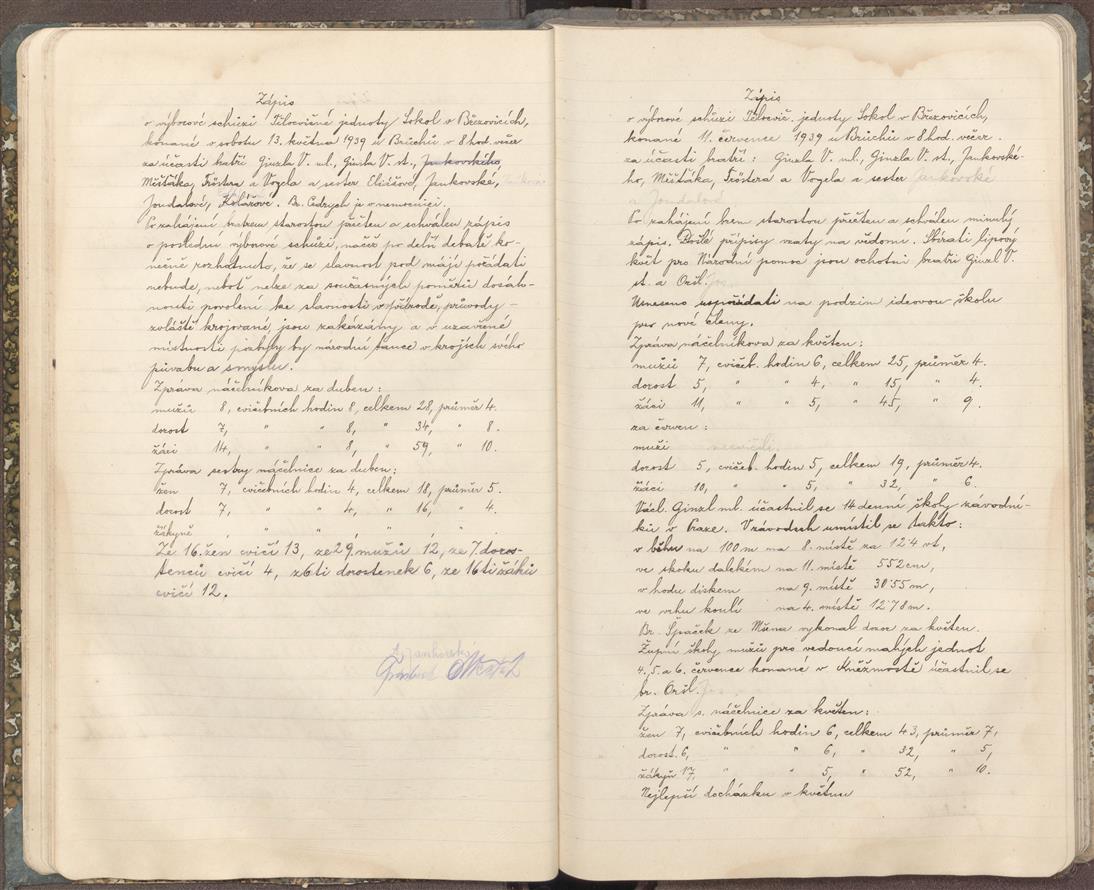 Zápis
o výborové schůzi Tělocvičné jednoty Sokol v Březovicích,
konané v sobotu 13. května 1939 u Brüchů v 8 hod. večer
za účasti bratří Ginzla V. ml., Ginzla V. st., Jankovského
Měšťáka, Tröstera a Vogela a sester Elisišové, Jankovské,
Jondalové, Kolářové. Br. Cidrych je v nemocnici.
Po zahájení bratrem starostou přečten a schválen zápis
o poslední výborové schůzi, načež po delší debatě ko-
nečně rozhodnuto, že se slavnost pod máji pořádati
nebude, neboť nelze za současných poměrů dosáh-
nouti povolení ke slavnosti v přírodě, průvody -
zvláště krojované jsou zakázány a v uzavřené
místnosti pozbyly by národní tance v krojích svého
půvabu a smyslu.
Zpráva náčelníkova za duben:
mužů 8, cvičebních hodin 8, celkem 28, průměr 4.
dorost 7, " " 8, " 34, " 8.
žáci 14, " " 8, " 59, " 10.
Zpráva sestry náčelnice za duben:
žen 7, cvičebních hodin 4, celkem 18, průměr 5.
dorost 7, " " 4, " 16, " 4.
žákyně , " " , " , " .
Ze 16. žen cvičí 13, ze 29. mužů 12, ze 7. doros-
tenců cvičí 4, z 6ti dorostenek 6, ze 16ti žáků
cvičí 12.
Jankovský
Zápis
o výborové schůzi Tělocvič. jednoty Sokol v Březovicích,
konané 11. července 1939 u Brüchů v 8 hod. večer.
za účasti bratří: Ginzla V. ml., Ginzla V. st., Jankovské-
ho, Měšťáka, Tröstera a Vogela a sester Jankovské
a Jondalové
Po zahájení brem starostou přečten a schválen minulý
zápis. Došlé přípisy vzaty na vědomí. Sbírati lipový
květ pro Národní pomoc jsou ochotni bratři Ginzl V.
st. a Oršl.
Usneseno uspořádati na podzim ideovou školu
pro nové členy.
Zpráva náčelníkova za květen:
mužů 7, cvičeb. hodin 6, celkem 25, průměr 4.
dorost 5, " " 4, " 15, " 4.
žáci 11, " " 5, " 45, " 9.
za červen:
muži necvičili
dorost 5, cvičeb. hodin 5, celkem 19, průměr 4.
žáci 10, " " 5, " 32, " 6.
Václ. Ginzl ml. účastnil se 14 denní školy závodní-
ků v Praze. V závodech umístil se takto:
v běhu na 100 m na 8. místě za 12'4 vt,
ve skoku dalekém na 11. místě 552 cm,
v hodu diskem na 9. místě 30'55 m,
ve vrhu koulí na 4. místě 12'78 m.
Br. Špaček ze Mšena vykonal dozor za květen.
Župní školy mužů pro vedoucí malých jednot
4. 5. a 6. července konané v Kněžmostě účastnil se
br. Oršl.
Zpráva s. náčelnice za květen:
žen 7, cvičebních hodin 6, celkem 43, průměr 7,
dorost. 6, " " 6, " 32, " 5,
žákyň 17, " " 5, " 52, " 10.
Nejlepší docházku v květnu